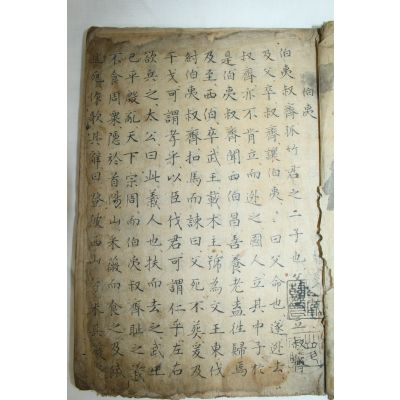 伯夷
伯夷叔齊孤竹君之二子也父
立叔齊
及父卒叔齊讓伯夷〻曰父命也遂逃去
叔齊亦不肯立而逃之國人立其中子於
是伯夷叔齊聞西伯昌善養老盍往歸焉
及至西伯卒武王載木主號為文王東伐
紂伯夷叔齊扣馬而諫曰父死不葬爰及
干戈可謂孝乎以臣伐君可謂仁乎左右
欲兵之太公曰此義人也扶而去之武王
已平殷亂天下宗周而伯夷叔齊恥之義
不食周粟隱於首陽山采薇而食之及餓
且死作歌其辭曰登彼西山
采其薇